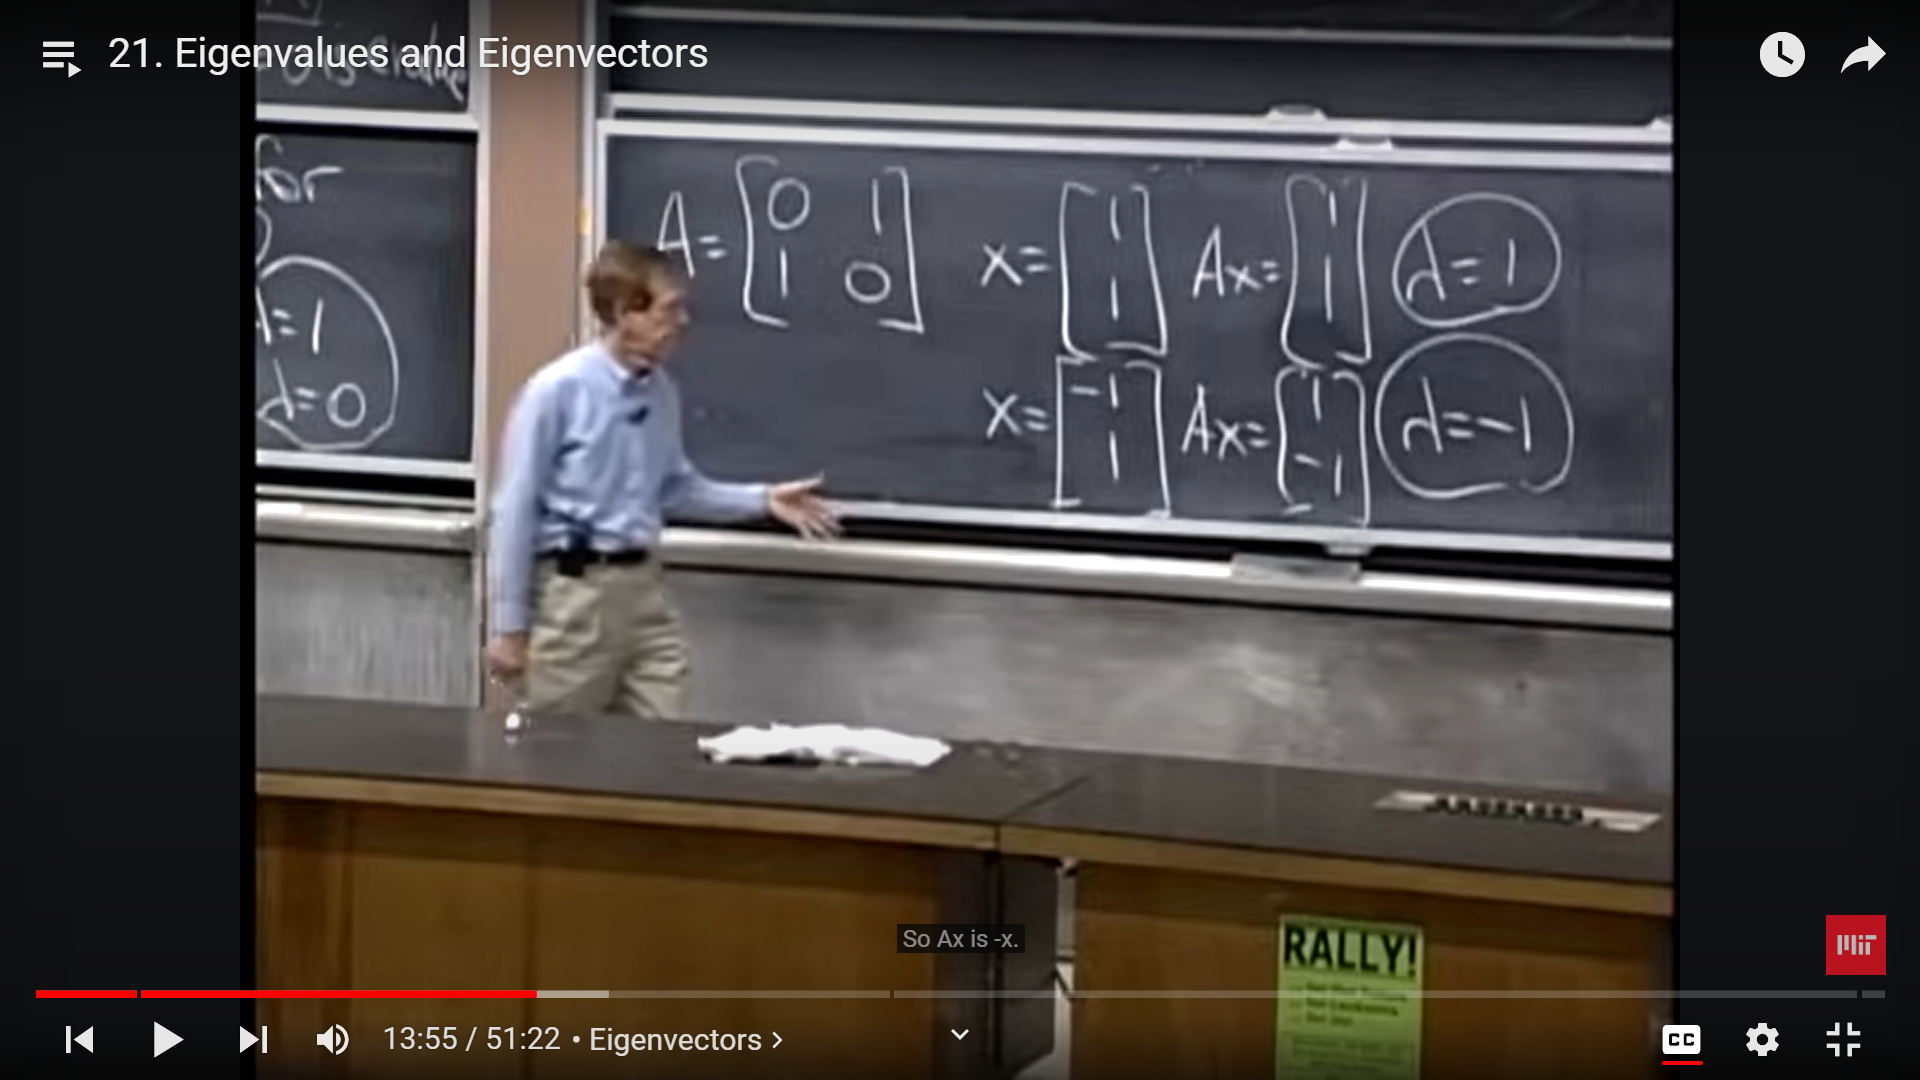 21. Eigenvalues and Eigenvectors
for
λ=1
λ=0
A = [0 1
1 0]
x = [1
1]
Ax = [1
1]
λ=1
x = [-1
1]
Ax = [1
-1]
λ=-1
So Ax is -x.
RALLY!
MIT
13:55 / 51:22 • Eigenvectors >
CC